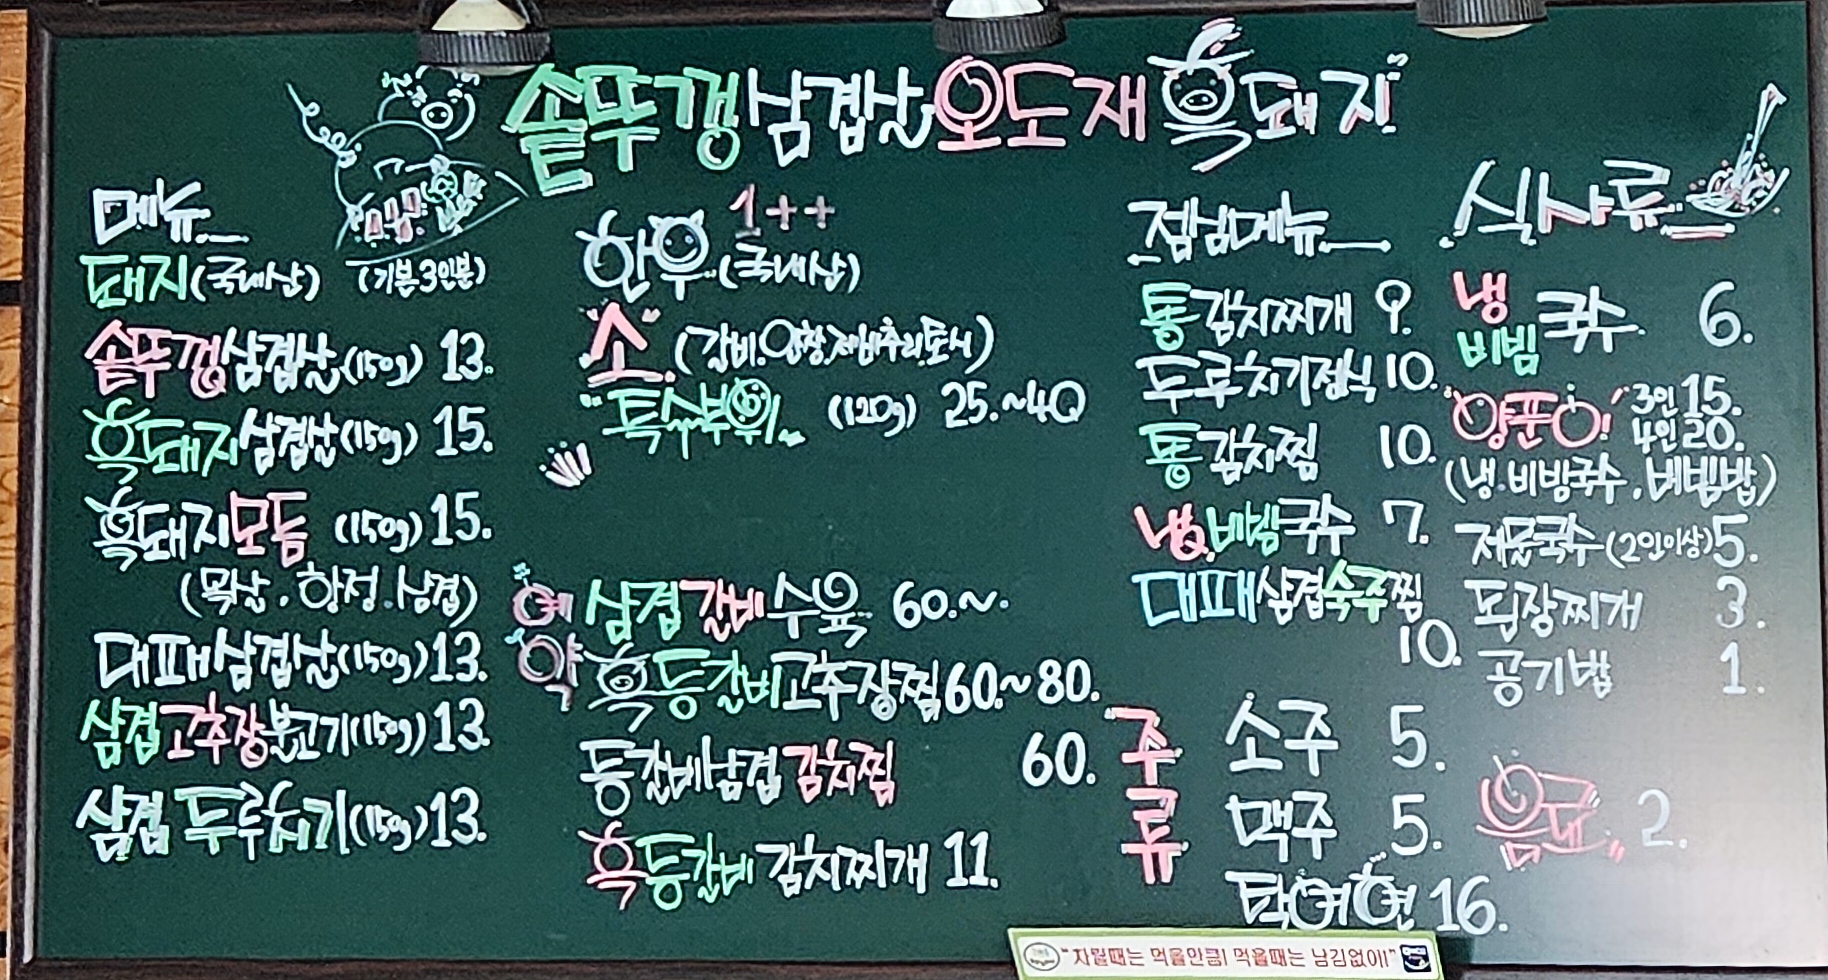 솥뚜껑삼겹살오도재흑돼지
메뉴
돼지(국내산) (기본3인분)
솥뚜껑삼겹살(150g) 13.
흑돼지삼겹살(150g) 15.
흑돼지모듬 (150g) 15.
(목살.항정.삼겹)
대패삼겹살(150g) 13.
삼겹고추장불고기(150g) 13.
삼겹두루치기(150g) 13.
한우 1++ (국내산)
"소" (갈비.안창.제비추리.토시)
"특수부위" (120g) 25.~40
예약
삼겹갈비수육 60.~.
흑등갈비고추장찜 60.~80.
등갈비삼겹김치찜 60.
흑등갈비김치찌개 11.
점심메뉴
통김치찌개 9.
두루치기정식 10.
통김치찜 10.
냉.비빔국수 7.
대패삼겹숙주찜 10.
주류
소주 5.
맥주 5.
16.
식사류
냉 비빔 국수. 6.
양푼이! 3인 15. 4인 20.
(냉.비빔국수.비빔밥)
저문국수(2인이상) 5.
된장찌개 3.
공기밥 1.
음료. 2.
"차릴때는 먹을만큼! 먹을때는 남김없이!"